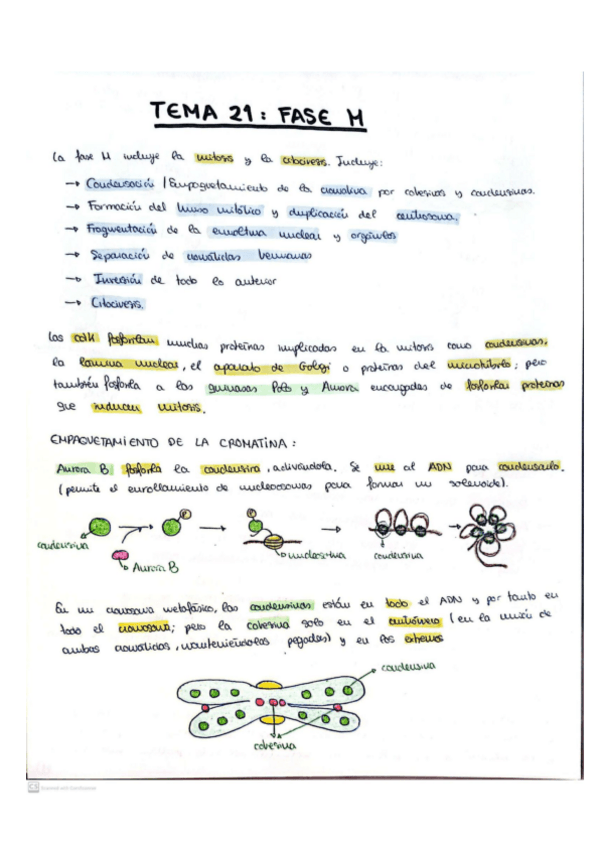 TEMA 21: FASE M
La fase M incluye la mitosis y la citocinesis. Incluye:
→ Condensación / Empaquetamiento de la cromatina por cohesinas y condensinas.
→ Formación del huso mitótico y duplicación del centrosoma.
→ Fragmentación de la envoltura nuclear y orgánulos
→ Separación de cromátidas hermanas
→ Inversión de todo lo anterior
→ Citocinesis.
Las cdk fosforilan muchas proteínas implicadas en la mitosis como condensinas,
la lámina nuclear, el aparato de Golgi o proteínas del microtúbulo; pero
también fosforila a las quinasas Polo y Aurora encargadas de fosforilar proteínas
que inducen mitosis.
EMPAQUETAMIENTO DE LA CROMATINA:
Aurora B fosforila la condensina, activándola. Se une al ADN para condensarlo.
(permite el enrollamiento de nucleosomas para formar un solenoide).
condensina
Aurora B
P
P
condensina
En un cromosoma metafásico, las condensinas están en todo el ADN y por tanto en
todo el cromosoma; pero la cohesina solo en el centrómero (en la unión de
ambas cromátidas, manteniéndolas pegadas) y en los extremos
condensina
cohesina
CS Scanned with CamScanner